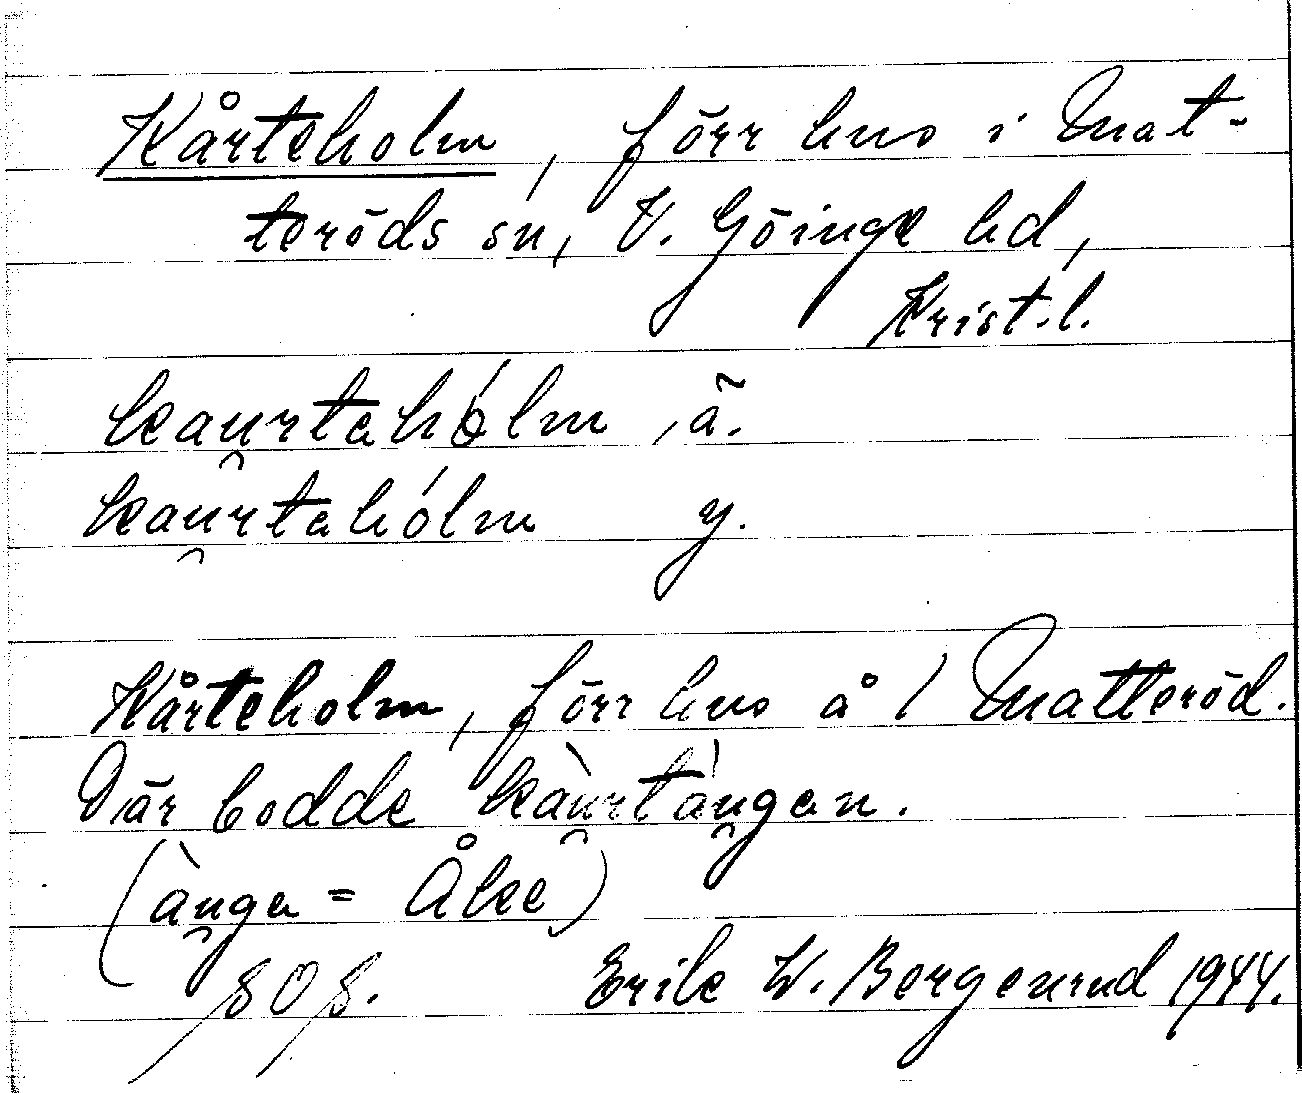 Kårteholm, förr hus i Mat-
teröds sn, V. Göinge hd,
Krist.l.
kau̯rtahólm, ä.
kau̯rtahólm y.
Kårteholm, förr hus å 1 Matteröd.
Där bodde kàu̯rtàu̯gan.
(àu̯ga = Åke)
SOS. Erik W. Bergenrud 1944.